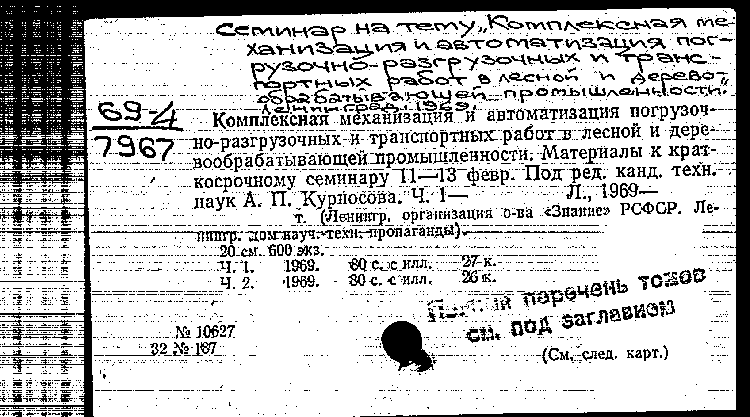 Семинар на тему „Комплексная ме-
ханизация и автоматизация пог-
рузочно-разгрузочных и транс-
портных работ в лесной и дерево-
обрабатывающей промышленности."
Ленинград, 1969.
69-4
7967
Комплексная механизация и автоматизация погрузоч-
но-разгрузочных и транспортных работ в лесной и дере-
вообрабатывающей промышленности. Материалы к крат-
косрочному семинару 11—13 февр. Под ред. канд. техн.
наук А. П. Курносова. Ч. 1— Л., 1969—
т. (Ленингр. организация о-ва «Знание» РСФСР. Ле-
нингр. дом науч.-техн. пропаганды).
20 см. 600 экз.
Ч. 1. 1969. 80 с. с илл. 27 к.
Ч. 2. 1969. 80 с. с илл. 26 к.
Полный перечень томов
см. под заглавием
№ 10627
32 № 187
(См. след. карт.)